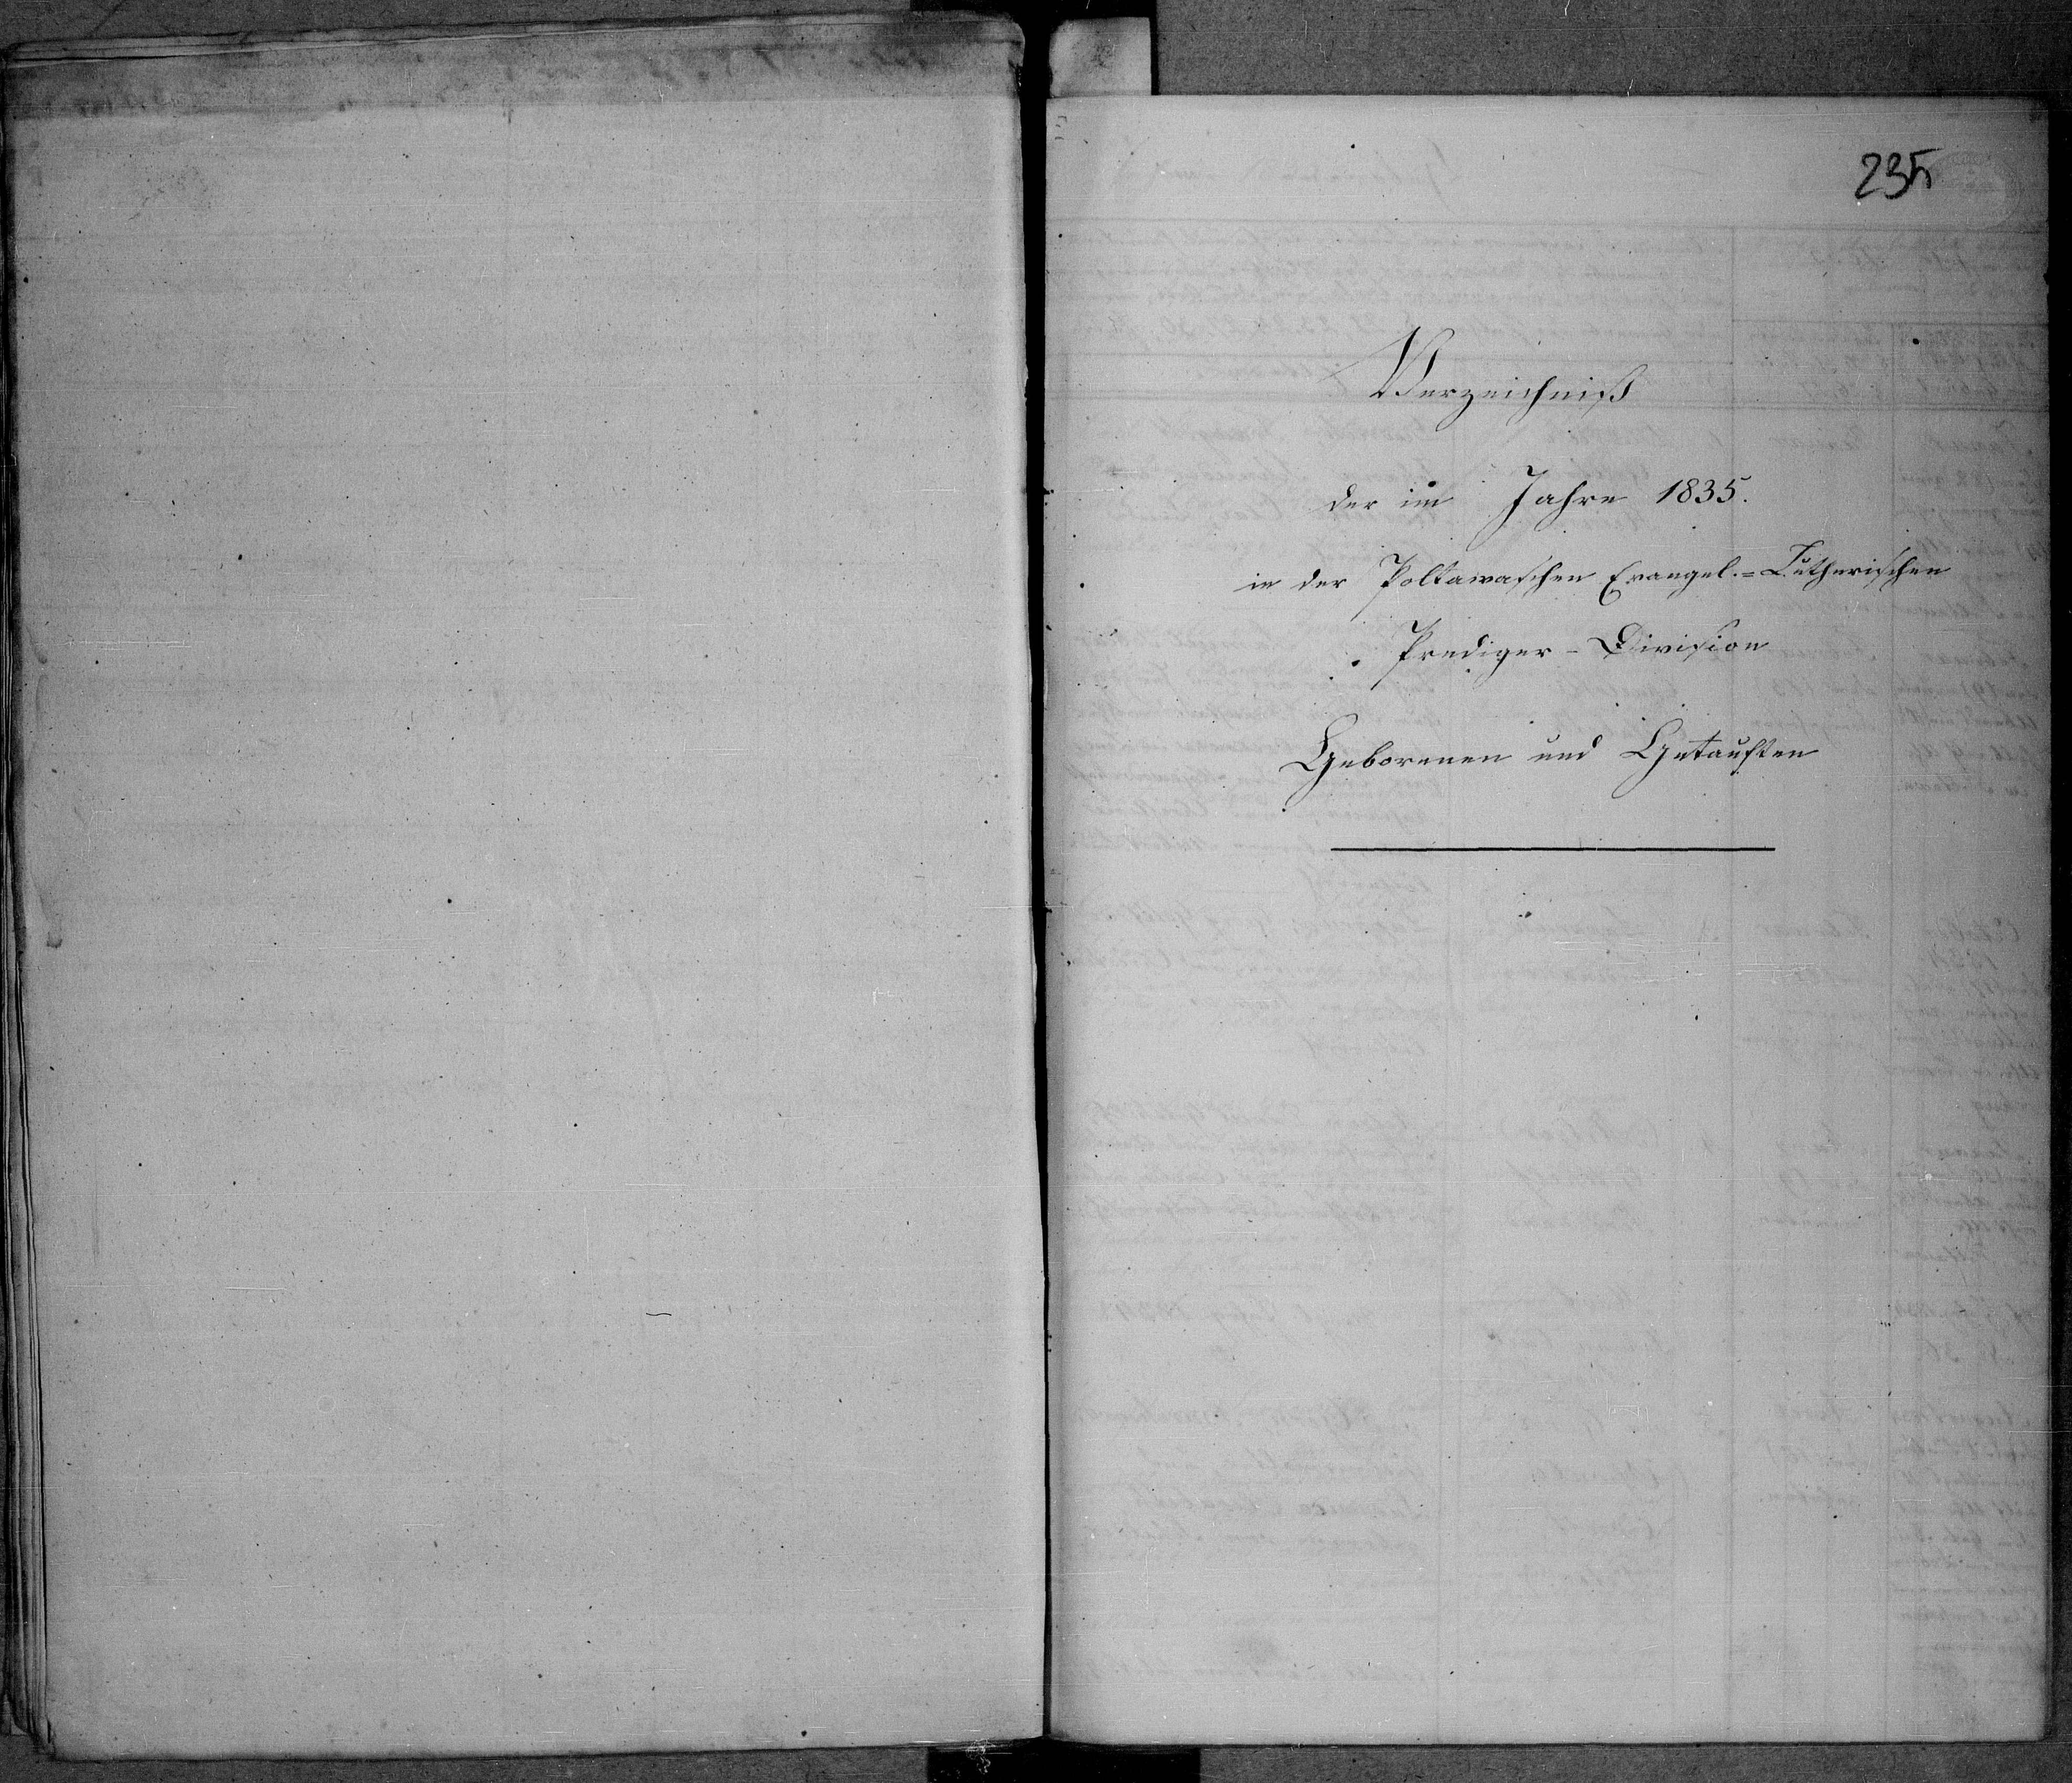 235
Verzeichniß
der im Jahre 1835.
in der Poltawaschen Evangel.=Lutherischen
Prediger-Division
Geborenen und Getauften